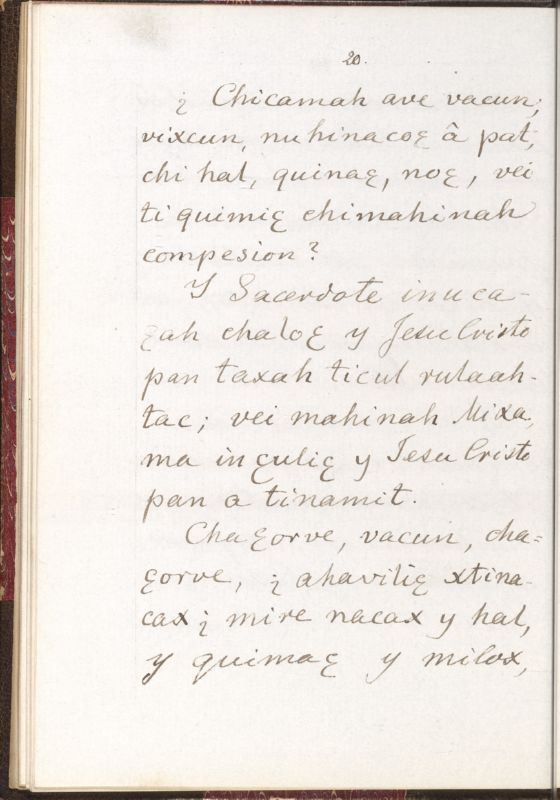 20.
¿ Chicamah ave vacun,
vixcun, nuhinacoꜫ â pat,
chi hal, quinaꜫ, noꜫ, vei
ti quimiꜫ chimahinah
compesion?
Y Sacerdote inuca-
ꜫah chaloꜫ y Jesu Cristo
pan taxah ticul rulaah-
tac; vei mahinah Mixa,
ma in ꜫuliꜫ y Jesu Cristo
pan a tinamit.
Chaꜫorve, vacun, cha=
ꜫorve, ¿ ahaviliꜫ xtina-
cax ¿ mire nacax y hal,
y quimaꜫ y milox,